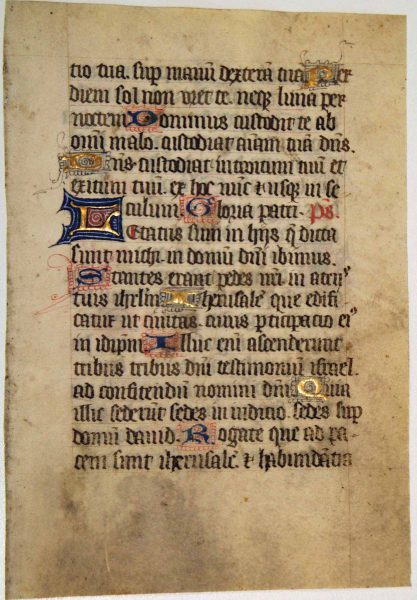 tio tua. sup manū dexterā tuā Per
diem sol non vret te. neq; luna per
noctem Dominus custodit te ab
omī malo. custodiat aīam tuā dn̄s.
Dn̄s custodiat introitum tuū et
exitum tuū. ex hoc nūc ⁊ usq; in se
culum. Gloria patri. Ps
Letatus sum in hijs q̄ dicta
sunt michi in domū dn̄i ibimus.
Stantes erant pedes nr̄i in atrijs
tuis ihrl̄m Iherusalē que edifi
catur ut ciuitas. cuius p̱ticipacio eiꝰ
in idip̄m Illuc enī ascenderunt
tribus tribus dn̄i testimonium israel
ad confitendū nomini dn̄i Quia
illic sederūt sedes in iudicio. sedes sup
domū dauid. Rogate que ad pa
cem sunt iherusalē. ⁊ habundātia